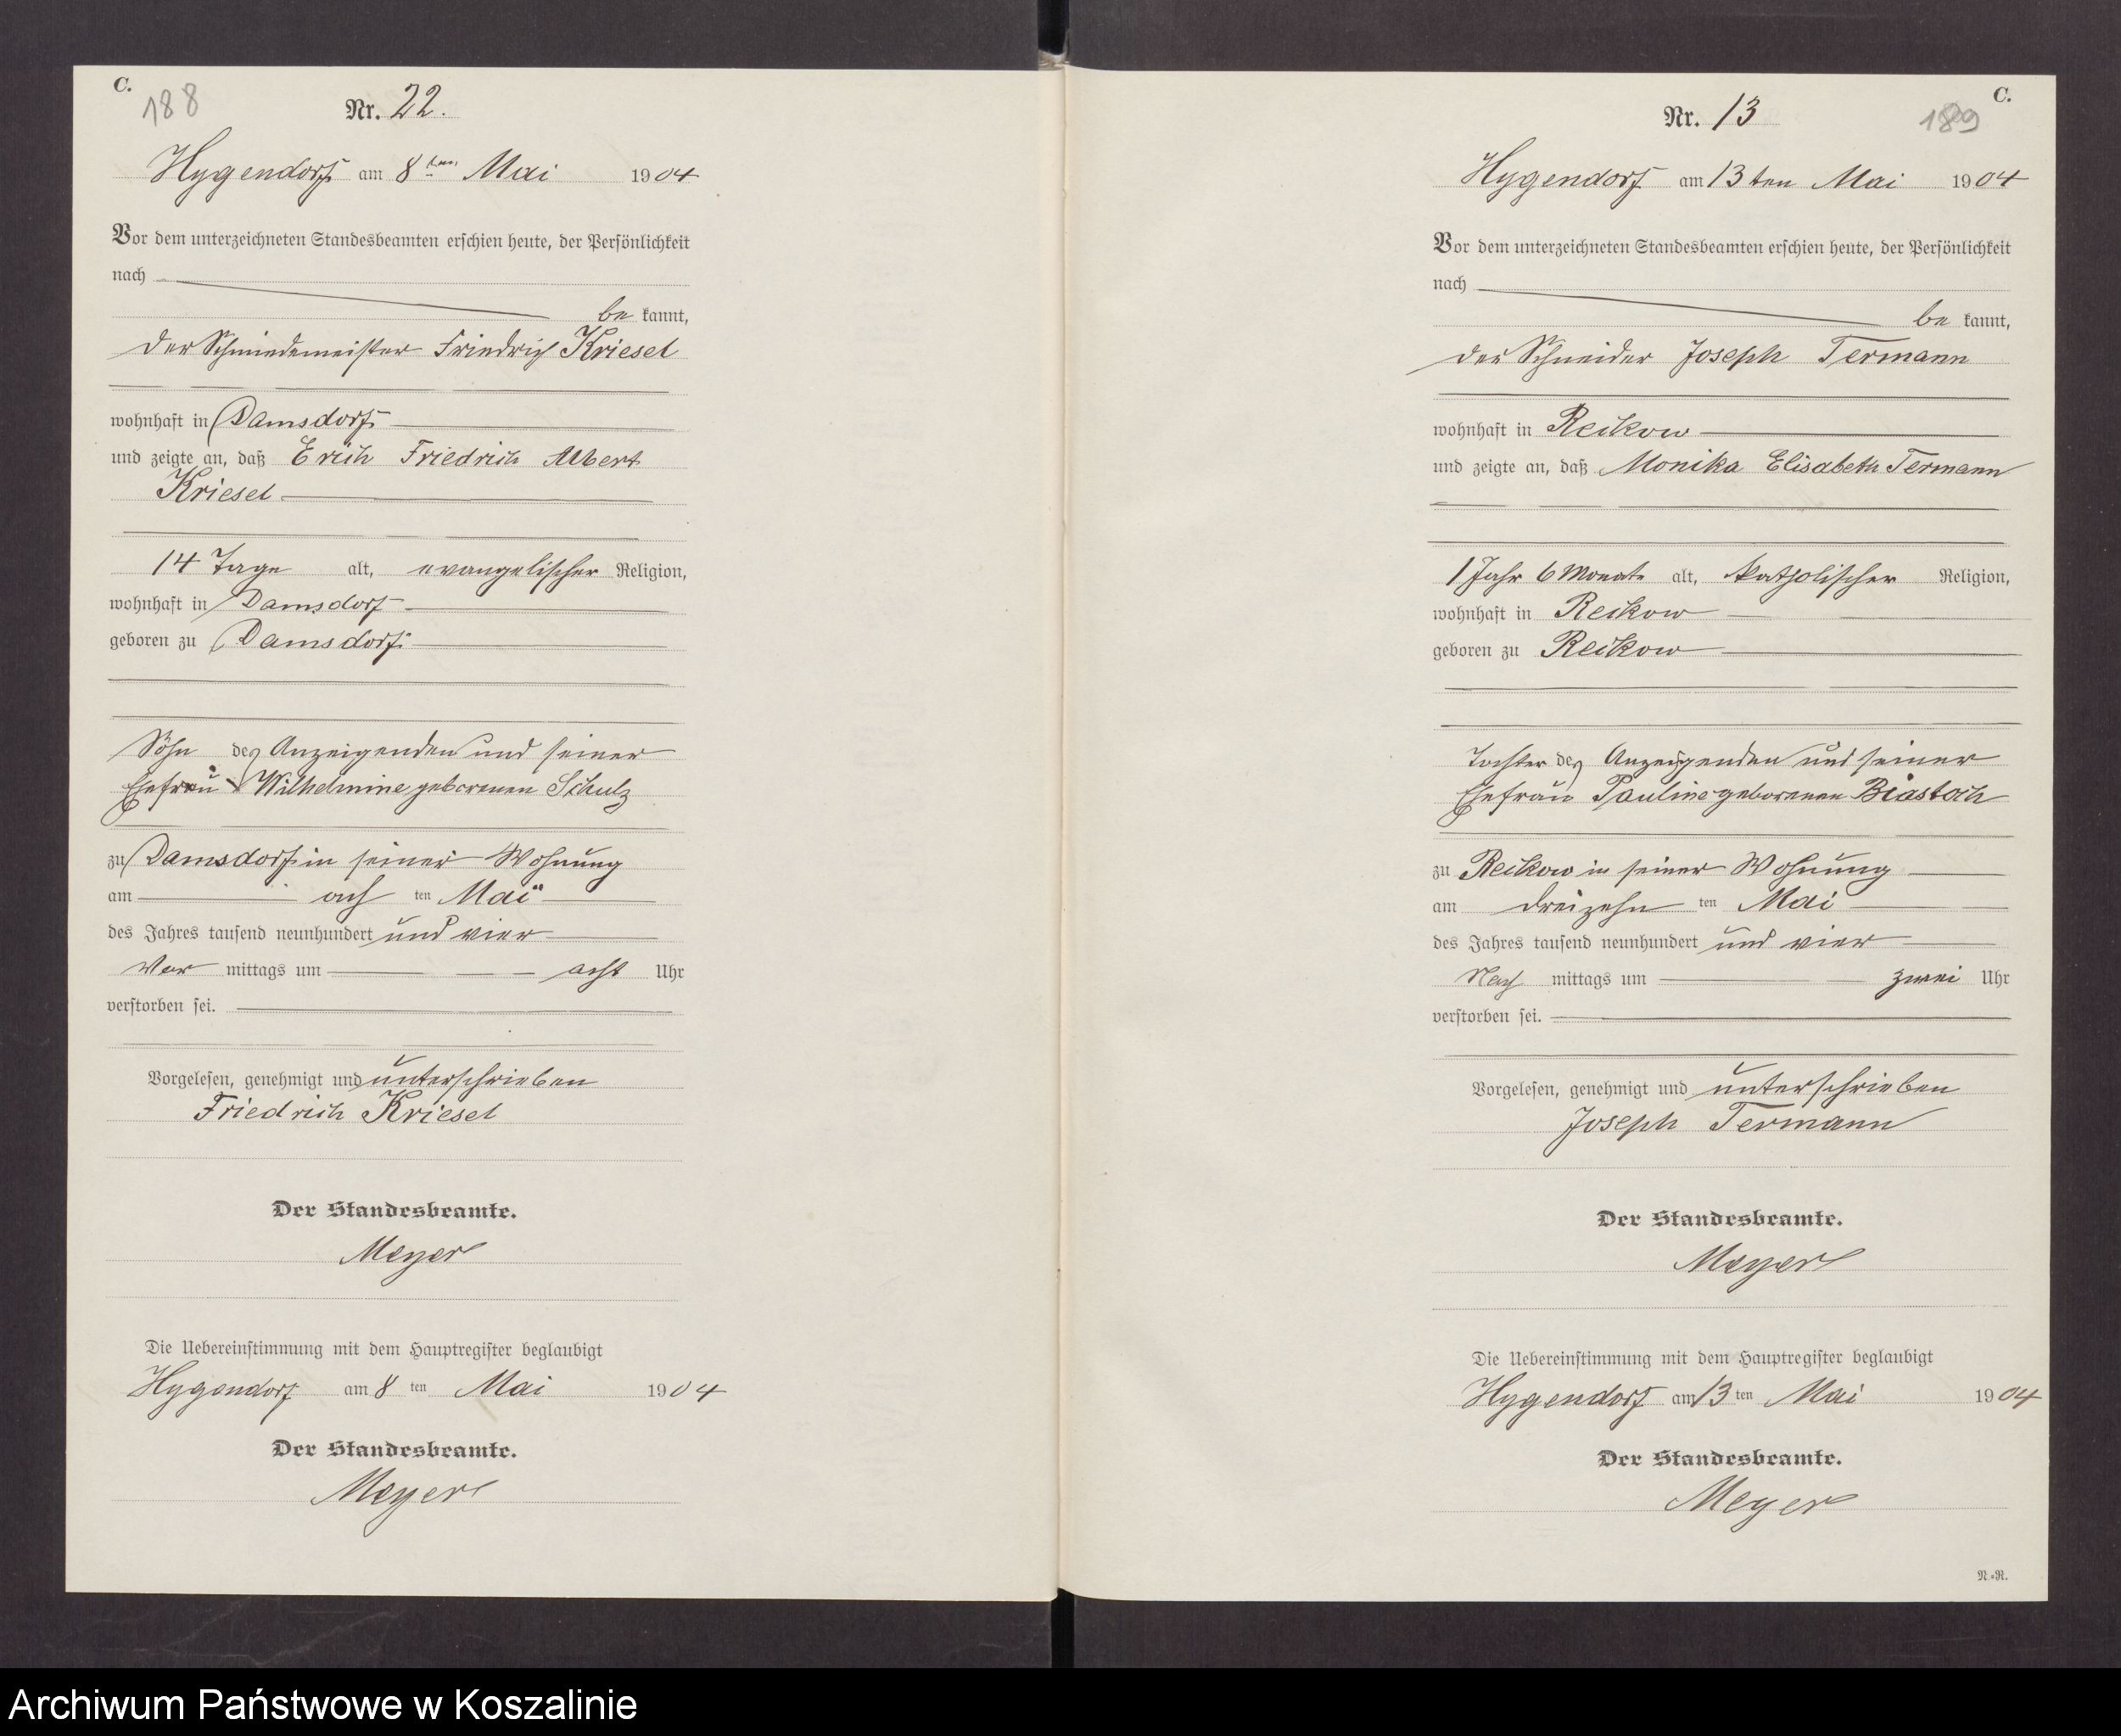 C.
188
Nr. 22.
Hygendorf am 8ten Mai 1904
Vor dem unterzeichneten Standesbeamten erschien heute, der Persönlichkeit
nach
be kannt,
der Schmiedemeister Friedrich Kriesel
wohnhaft in Damsdorf
und zeigte an, daß Erich Friedrich Albert
Kriesel
14 Tage alt, evangelischer Religion,
wohnhaft in Damsdorf
geboren zu Damsdorf
Sohn des Anzeigenden und seiner
Ehefrau Wilhelmine geborenen Schulz
zu Damsdorf in seiner Wohnung
am ach ten Mai
des Jahres tausend neunhundert und vier
Vor mittags um acht Uhr
verstorben sei.
Vorgelesen, genehmigt und unterschrieben
Friedrich Kriesel
Der Standesbeamte.
Meyer
Die Uebereinstimmung mit dem Hauptregister beglaubigt
Hygendorf am 8 ten Mai 1904
Der Standesbeamte.
Meyer
C.
189
Nr. 13
Hygendorf am 13ten Mai 1904
Vor dem unterzeichneten Standesbeamten erschien heute, der Persönlichkeit
nach
be kannt,
der Schneider Joseph Termann
wohnhaft in Reikow
und zeigte an, daß Monika Elisabeth Termann
1 Jahr 6 Monate alt, katholischer Religion,
wohnhaft in Reikow
geboren zu Reikow
Tochter des Anzeigenden und seiner
Ehefrau Pauline geborenen Biastoch
zu Reikow in seiner Wohnung
am dreizehn ten Mai
des Jahres tausend neunhundert und vier
Nach mittags um zwei Uhr
verstorben sei.
Vorgelesen, genehmigt und unterschrieben
Joseph Termann
Der Standesbeamte.
Meyer
Die Uebereinstimmung mit dem Hauptregister beglaubigt
Hygendorf am 13 ten Mai 1904
Der Standesbeamte.
Meyer
N.=R.
Archiwum Państwowe w Koszalinie